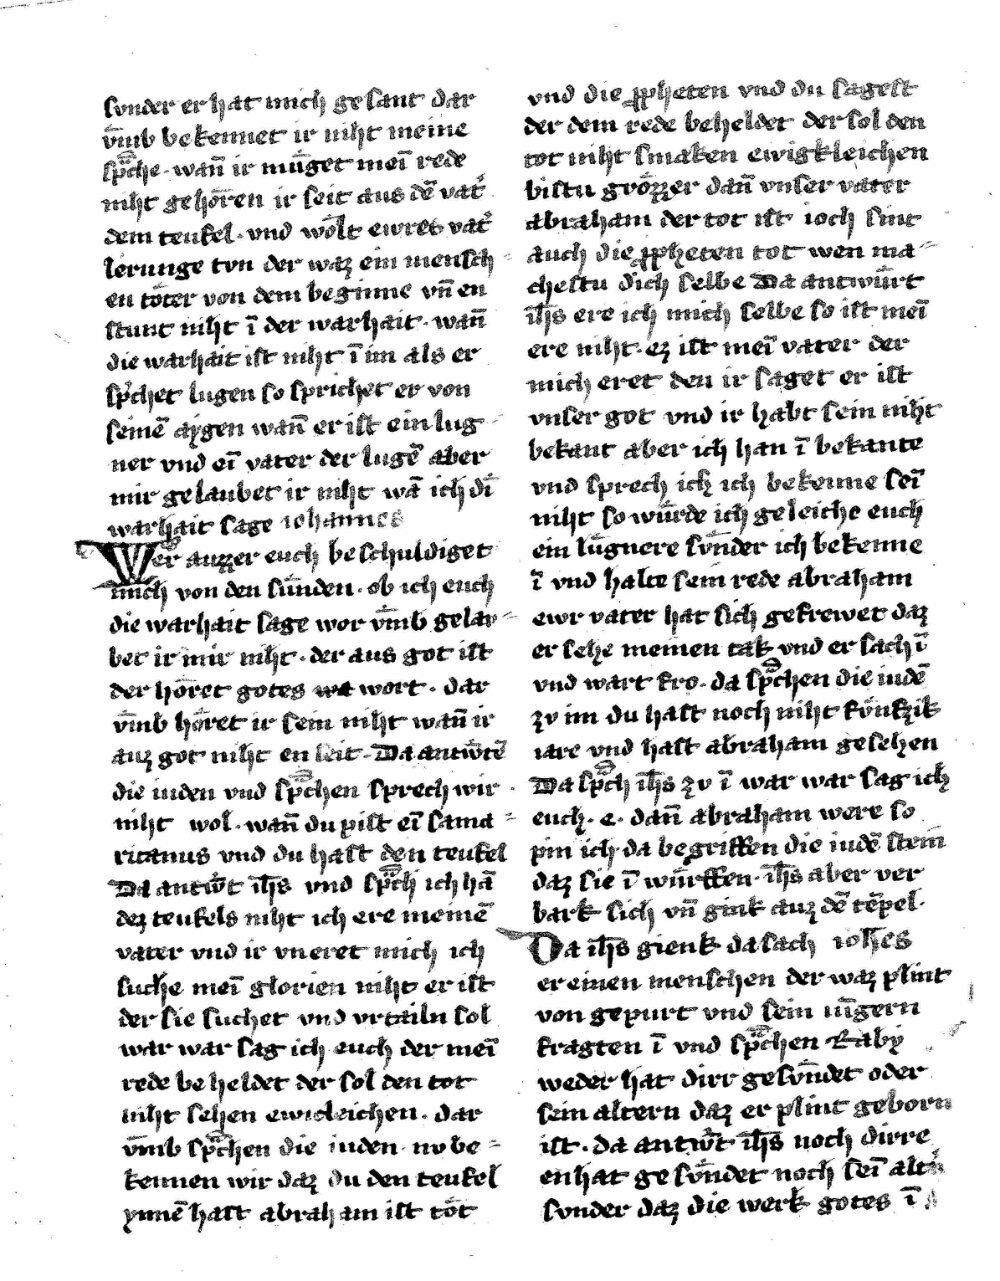 sunder er hat mich gesant dar
vm̄b bekennet ir niht meine
sp̄che · wan̄ ir mu̇get mei͞ rede
niht gehoͤren ir seit aus de͞ vat̾
dem teufel · vnd woͤlt ewret vat̾
lerunge tvn der waz ein mensch⸗
en toͤter von dem beginne vn̄ en
stunt niht i͞ der warhait · wan̄
die warhait ist niht i͞ im als er
sp̾chet lugen so sprichet er von
seine͞ aẏgen wan̄ er ist ein lug
ner vnd ei͞ vater der luge͞ aber
mir gelaubet ir niht wa͞ ich di͞
warhait sage iohannes
Wer auzzer euch beschuldiget
mich von den su̇nden · ob ich euch
die warhait sage wor vm̄b gelav⸗
bet ir mir niht · der aus got ist
der hoͤret gotes wort · dar
vm̄b hoͤret ir sein niht wan̄ ir
auz got niht en seit · Da antwͦte͞
die iuden vnd sp̄chen sprech wir
niht wol · wan̄ du pist ei͞ sama⸗
ritanus vnd du hast den teufel
Da antwͦt ih̄s vnd sp̄ch ich ha͞
dez teufels niht ich ere meine͞
vater vnd ir vneret mich ich
suche mei͞ glorien niht er ist
der sie suchet vnd vrtailn sol
war war sag ich euch der mei͞
rede beheldet der sol den tot
niht sehen ewicleichen · dar
vm̄b sp̄chen die iuden · nv be⸗
kennen wir daz du den teufel
ynne͞ hast abraham ist toͤt
vnd die ꝓpheten vnd du sagest
der dem rede beheldet der sol den
tot niht smaken ewigkleichen
bistu groͤzzer dan̄ vnser vater
abraham der tot ist · ioch sint
auch die ꝓpheten tot wen ma⸗
chestu dich selbe Da antwu̇rt
ih̄s ere ich mich selbe so ist mei͞
ere niht · ez ist mei͞ vater der
mich eret den ir saget er ist
vnser got vnd ir habt sein niht
bekant aber ich han i͞ bekante
vnd sprech ich ich bekenne sei͞
niht so wu̇rde ich geleiche euch
ein lu̇gnere su̇nder ich bekenne
i͞ vnd halte sein rede abraham
ewr vater hat sich gefrewet daz
er sehe meinen tak vnd er sach i͞
vnd wart fro · da sp̄chen die iude͞
zv im du hast noch niht fvͤnfzik
iare vnd hast abraham gesehen
Da sp̄ch ih̄s zv i͞ war war sag ich
euch · e · dan̄ abraham were so
pin ich · da begriffen die iude͞ stein͞
daz sie i͞ wu̇rffen · ih̄s aber ver
bark sich vn̄ gink auz de͞ te͞pel ·
Da ih̄s gienk da sach ioh̄es
er einen menschen der waz plint
von gepurt vnd sein iu̇ngern
fragten i͞ vnd sp̄chen Raby
weder hat dirr gesvͤndet oder
sein altern daz er plint geborn
ist · da antwͦt ih̄s noch dirre
enhat gesvͤndet noch sei͞ alt̾n
sunder daz die werk gotes i͞